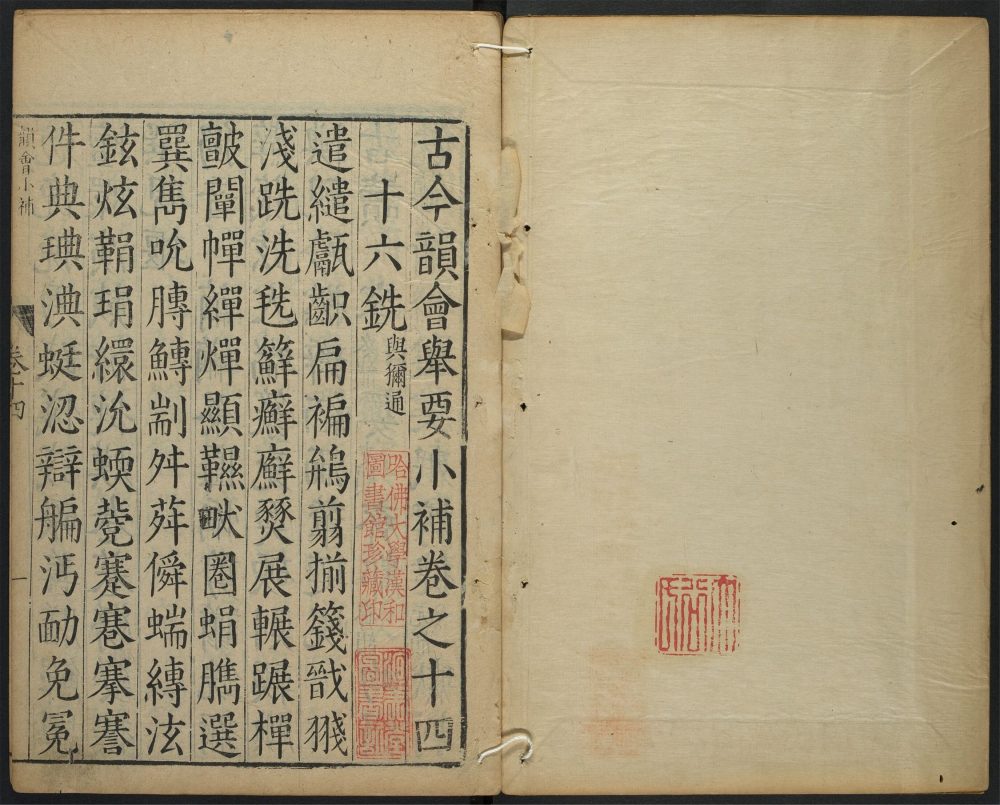 古今韻會舉要小補卷之十四
十六銑與獮通
遣繾甗齞扁褊鴘翦揃籛戩戔
淺跣洗毨籼癬廯燹展輾蹍樿
皽闡幝繟燀顯韅畎圈蜎臇選
巽雋吮膊鱄剬舛荈僢蝡縳泫
鉉炫鞙琄繯沇蝡甍蹇寋搴謇
件典琠淟蜓涊辯艑沔勔免冕
韻會小補
卷十四
一
哈佛大學漢和
圖書館珍藏印